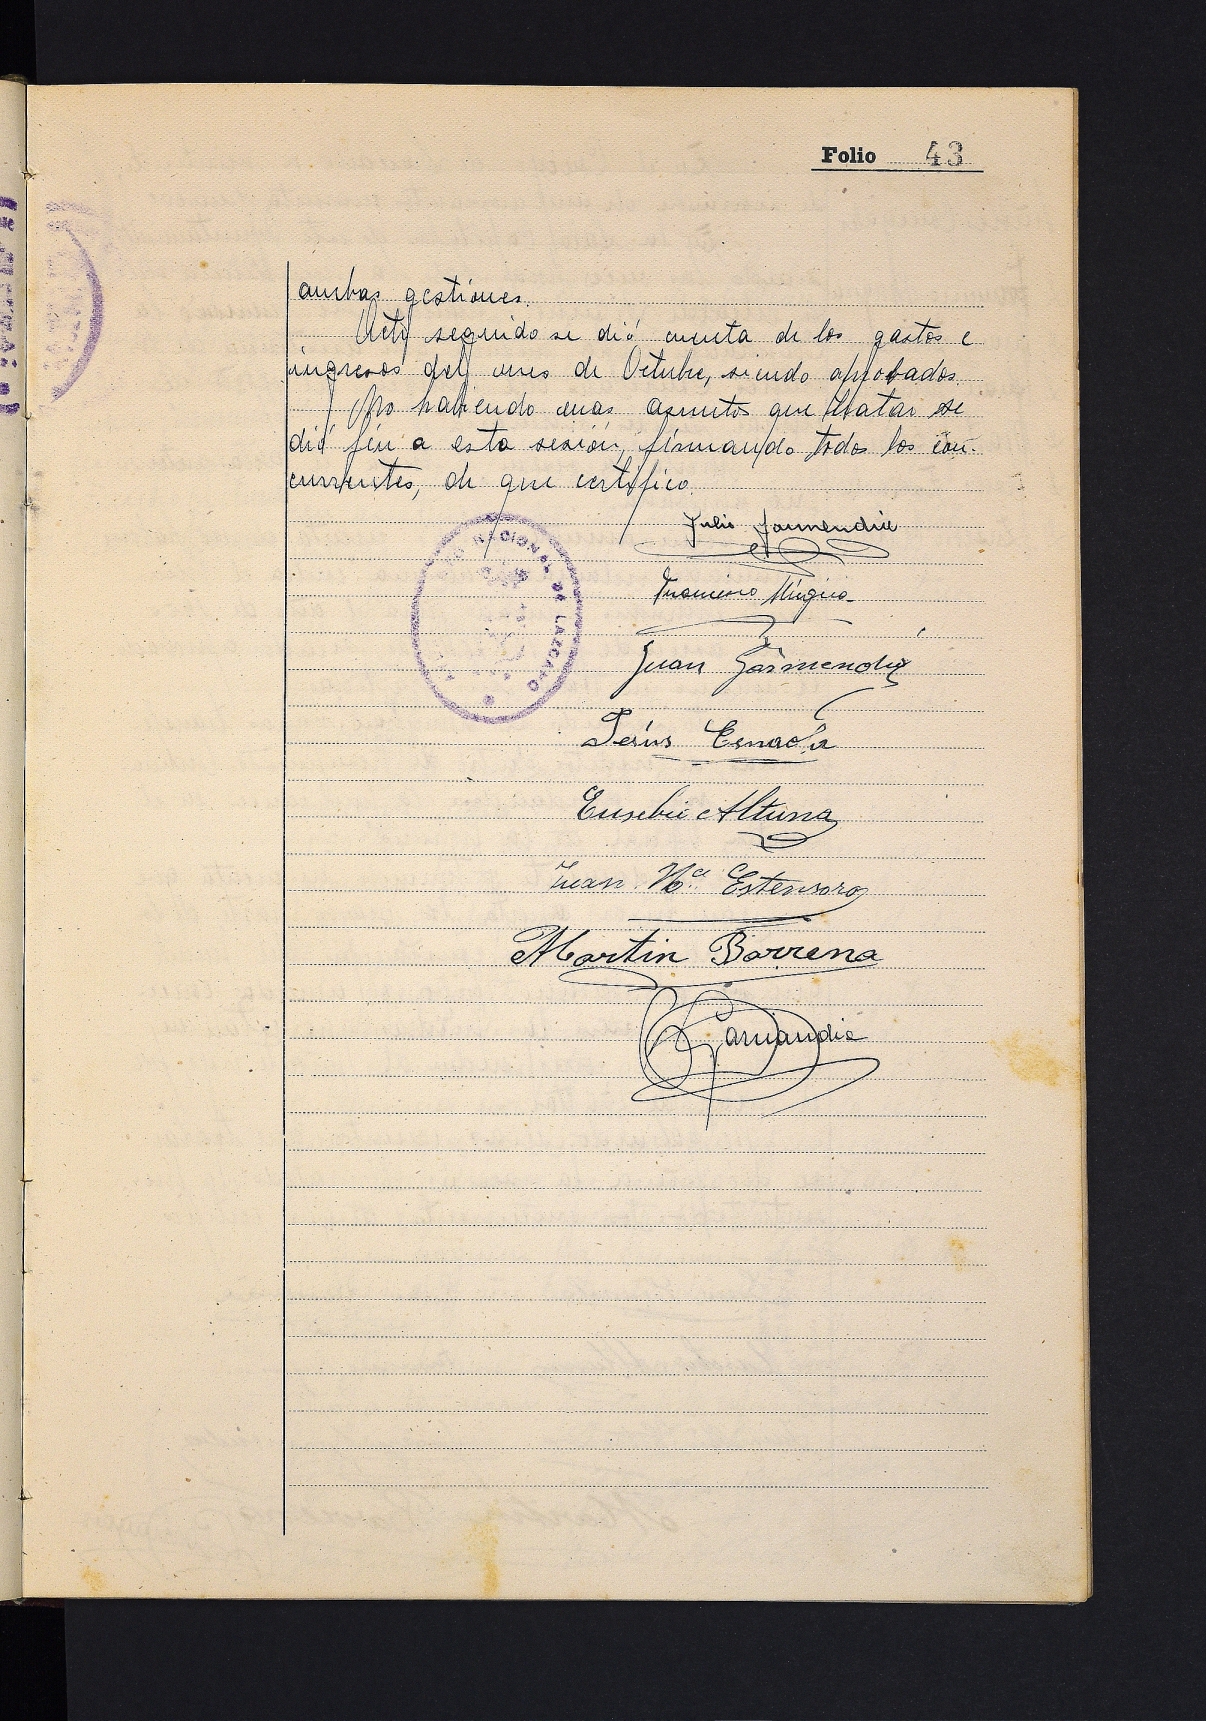 Folio 43
ambas gestiones.
Acto seguido se dió cuenta de los gastos e
ingresos del mes de Octubre, siendo aprobados.
No habiendo mas asuntos que tratar se
dió fin a esta sesión, firmando todos los con-
currentes, de que certifico.
Julio Garmendia
Francisco Múgica
Juan Garmendia
Jesús Esnaola
Eusebio Altuna
Juan Mª Estensoro
Martin Barrena
NACIONAL DE LAZCANO